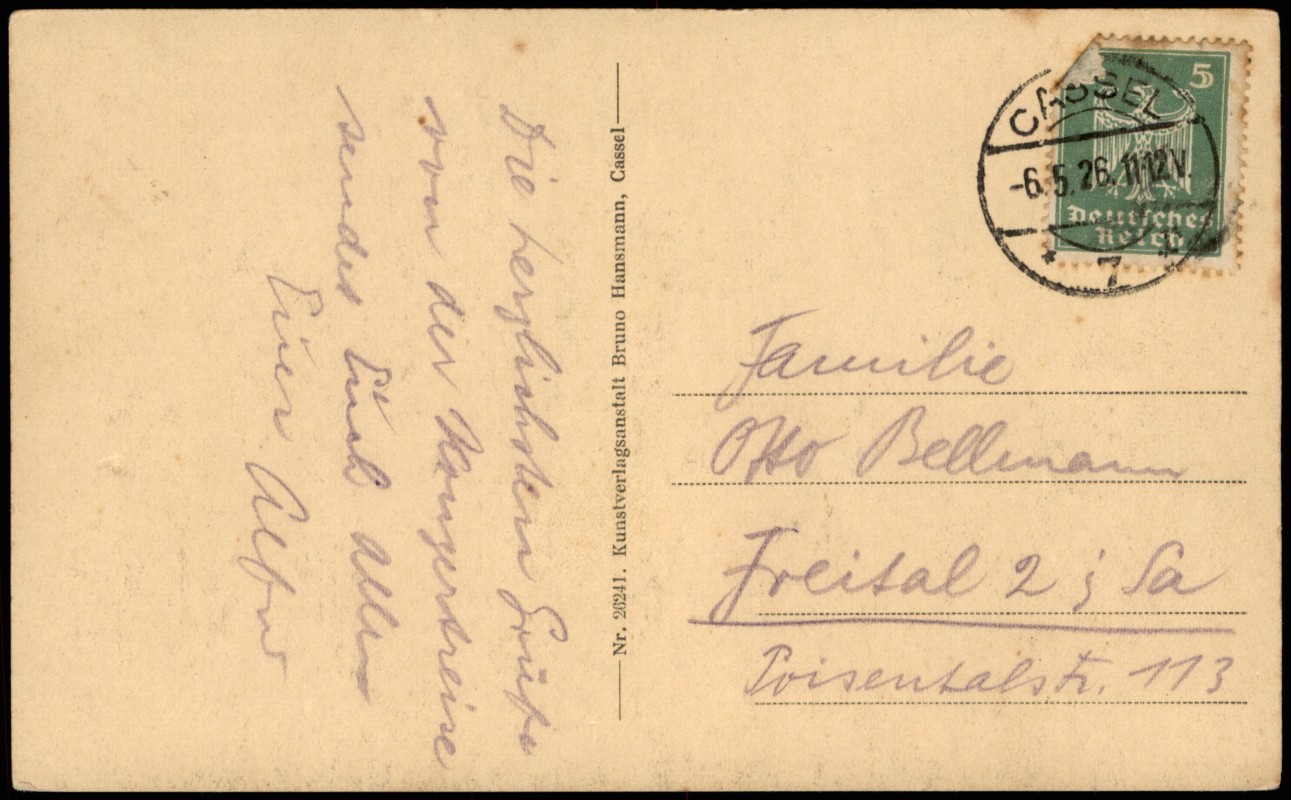 Die herzlichsten Grüße
von der Konzertreise
sendet Euch allen
Euer Alfred
Nr. 26241. Kunstverlagsanstalt Bruno Hansmann, Cassel
CASSEL
-6.5.26. 11-12 V.
* 7 *
5
Deutsches
Reich
Familie
Otto Bellmann
Freital 2 i Sa
Poisentalstr. 113